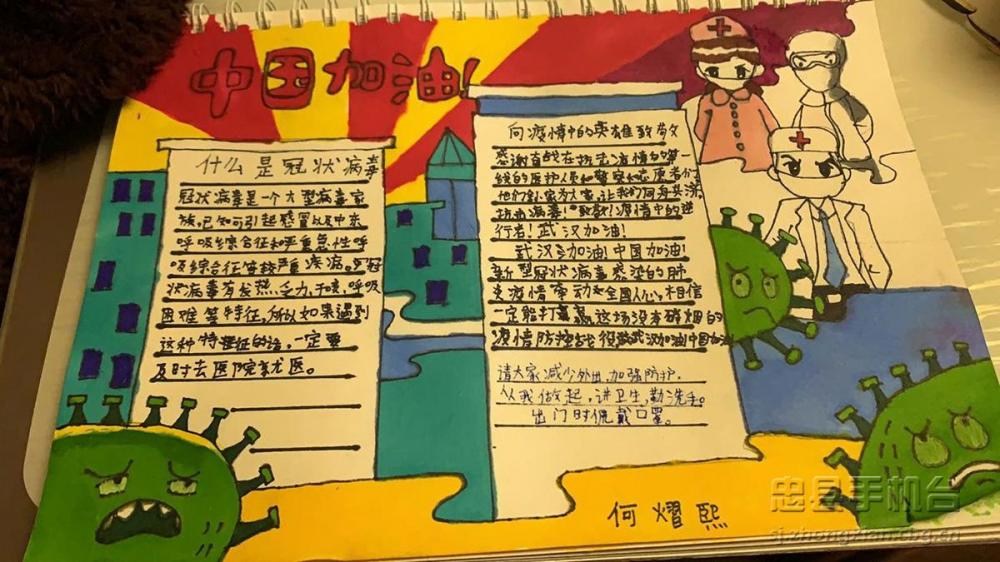 中国加油!
什么是冠状病毒
冠状病毒是一个大型病毒家
族,已知可引起感冒以及中东
呼吸综合征和严重急性呼
吸综合征等较严重疾病。冠
状病毒有发热、乏力、干咳、呼吸
困难等特征,所以如果遇到
这种特征的话,一定要
及时去医院就医。
向疫情中的英雄致敬
感谢奋战在抗击疫情的第一
线的医护人员和警察
他们舍小家为大家,让我们同舟共济,
抗击病毒!致敬!疫情中的逆
行者!武汉加油!
武汉加油!中国加油!
新型冠状病毒感染的肺
炎疫情牵动全国人心,相信
一定能打赢这场没有硝烟的
疫情防控战 武汉加油中国加油
请大家减少外出,加强防护,
从我做起,讲卫生,勤洗手。
出门时佩戴口罩。
何熠熙
忠县手机台
sj.zhongxian.cbg.cn